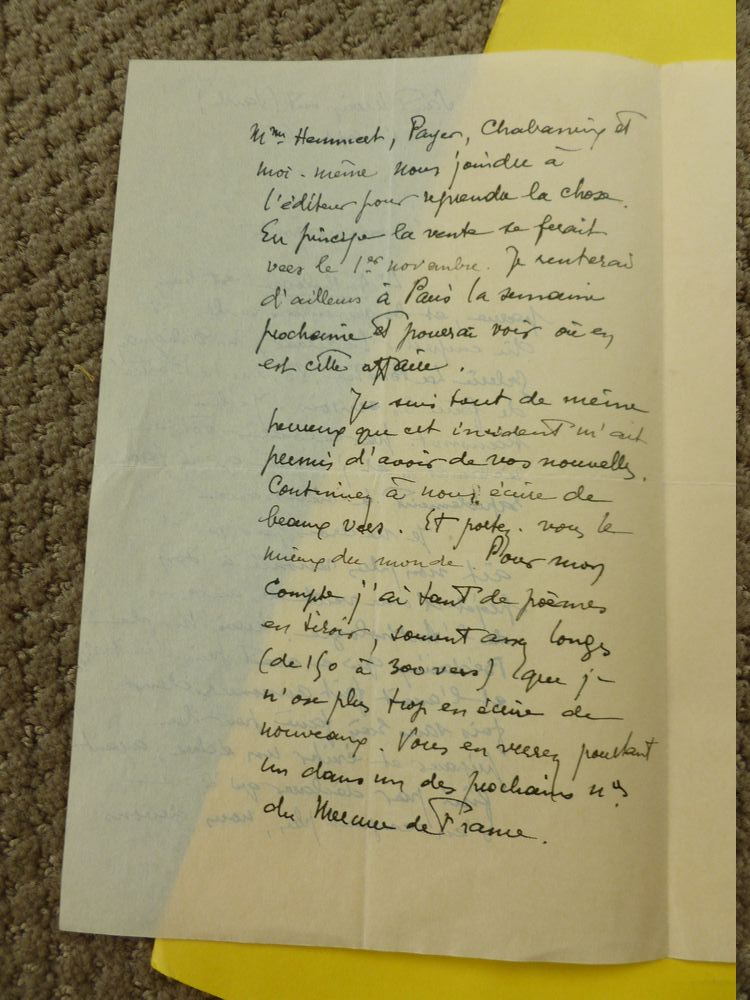 Mmes Hemmert, Payer, Chabaneix et
moi-même nous joindre à
l'éditeur pour reprendre la chose.
En principe la vente se ferait
vers le 1er novembre. Je rentrerai
d'ailleurs à Paris la semaine
prochaine et pourrai voir où en
est cette affaire.
Je suis tout de même
heureux que cet incident m'ait
permis d'avoir de vos nouvelles.
Continuez à nous écrire de
beaux vers. Et portez-vous le
mieux du monde. Pour mon
compte j'ai tant de poèmes
en tiroir, souvent assez longs
(de 150 à 300 vers) que je
n'ose plus trop en écrire de
nouveaux. Vous en verrez pourtant
un dans un des prochains nos
du Mercure de France.